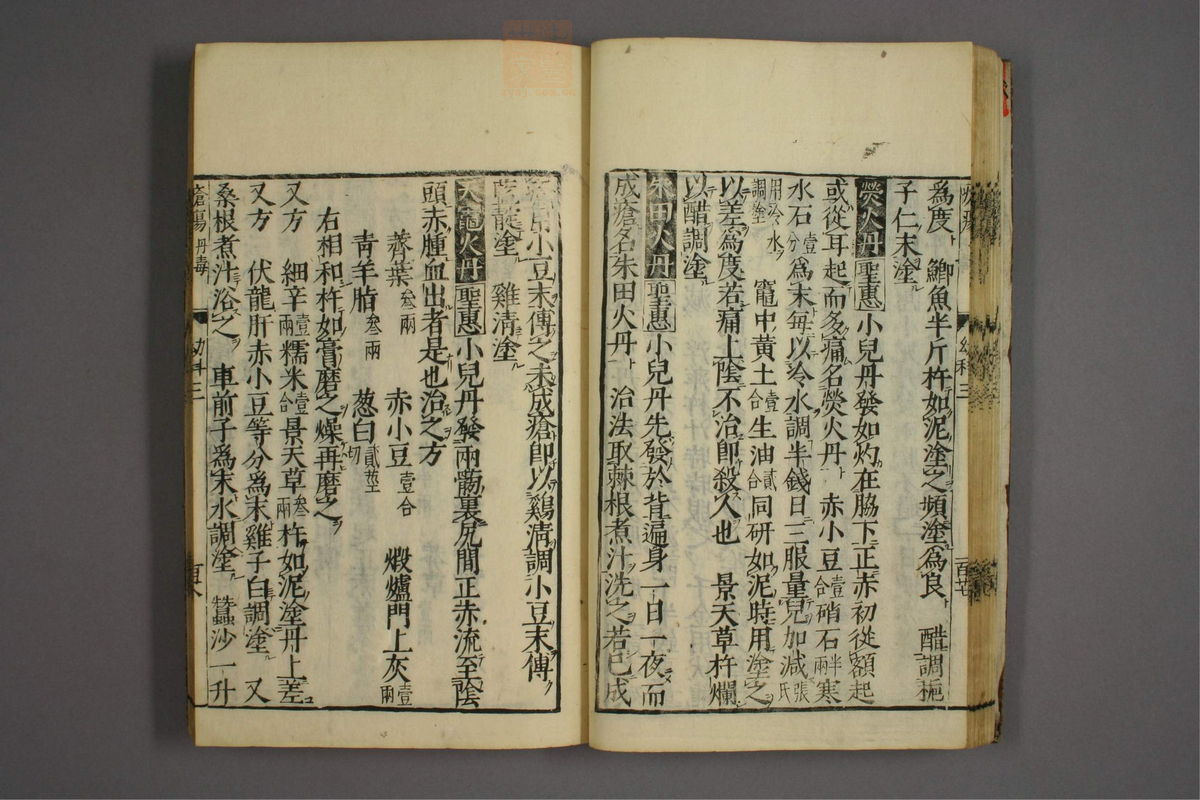 為度 鯽魚半斤杵如泥塗之頻塗為良 醋調梔
子仁末塗
熒火丹 聖惠 小兒丹發如灼在脇下正赤初從額起
或從耳起而多痛名熒火丹 赤小豆壹合硝石半兩寒
水石壹分為末每以冷水調半錢日三服量兒加減張氏
用冷水調塗 竈中黄土壹合生油貳合同研如泥時用塗之
以差為度若痛上陰不治即殺人也 景天草杵爛
以醋調塗
朱田火丹 聖惠 小兒丹先發於背遍身一日一夜而
成瘡名朱田火丹 治法取棘根煮汁洗之若已成
瘡用小豆末傅之未成瘡即以鷄清調小豆末傅
藍靛塗 雞清塗
天竈火丹 聖惠 小兒丹發兩䯊裏尻間正赤流至陰
頭赤腫血出者是也治之方
薺葉叁兩 赤小豆壹合 煅爐門上灰壹兩
青羊脂叁兩 葱白貳莖切
右相和杵如膏磨之燥再磨之
又方 細辛壹兩糯米壹合景天草叁兩杵如泥塗丹上差
又方 伏龍肝赤小豆等分為末雞子白調塗 又
桑根煮汁浴之 車前子為末水調塗 蠶沙一升
瘡瘍 丹毒 幼科三